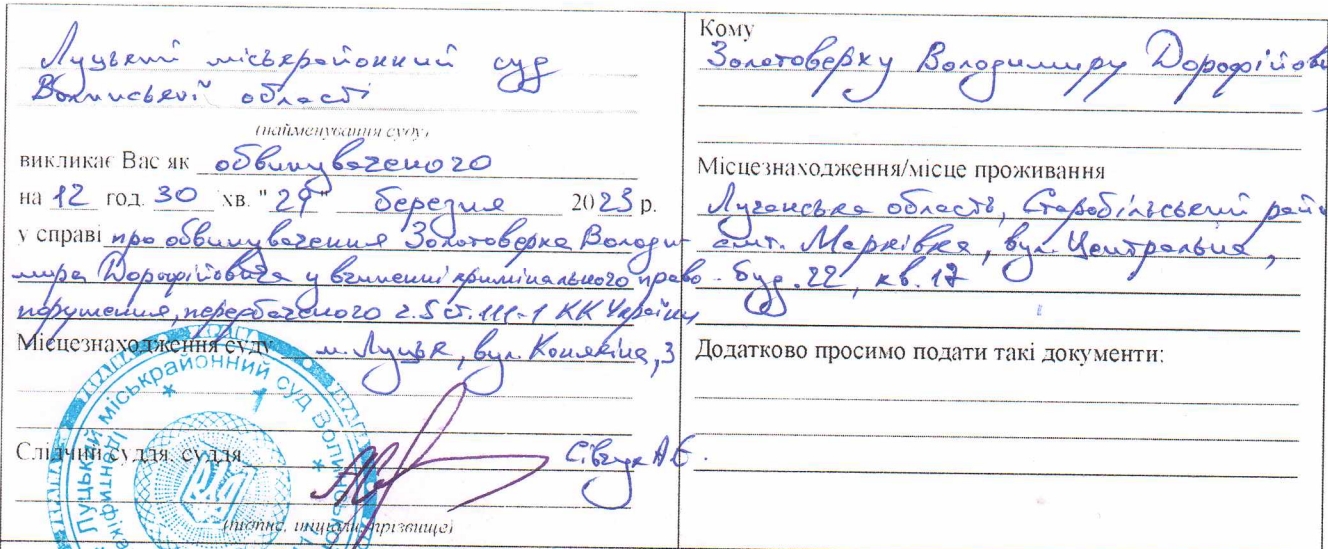 Луцький міськрайонний суд
Волинської області
(найменування суду)
викликає Вас як обвинуваченого
на 12 год. 30 хв. "29" березня 2023 р.
у справі про обвинувачення Золотоверха Володи-
мира Дорофійовича у вчиненні кримінального право-
порушення, передбаченого ч.5 ст. 111-1 КК України
Місцезнаходження суду м. Луцьк, вул. Конякіна, 3
Слідчий суддя, суддя Сівчук А.Є.
(підпис, ініціали, прізвище)
Луцький міськрайонний суд Волин
Кому
Золотоверху Володимиру Дорофійови
Місцезнаходження/місце проживання
Луганська область, Старобільський райо
смт. Марківка, вул. Центральна,
буд. 22, кв. 17
Додатково просимо подати такі документи: